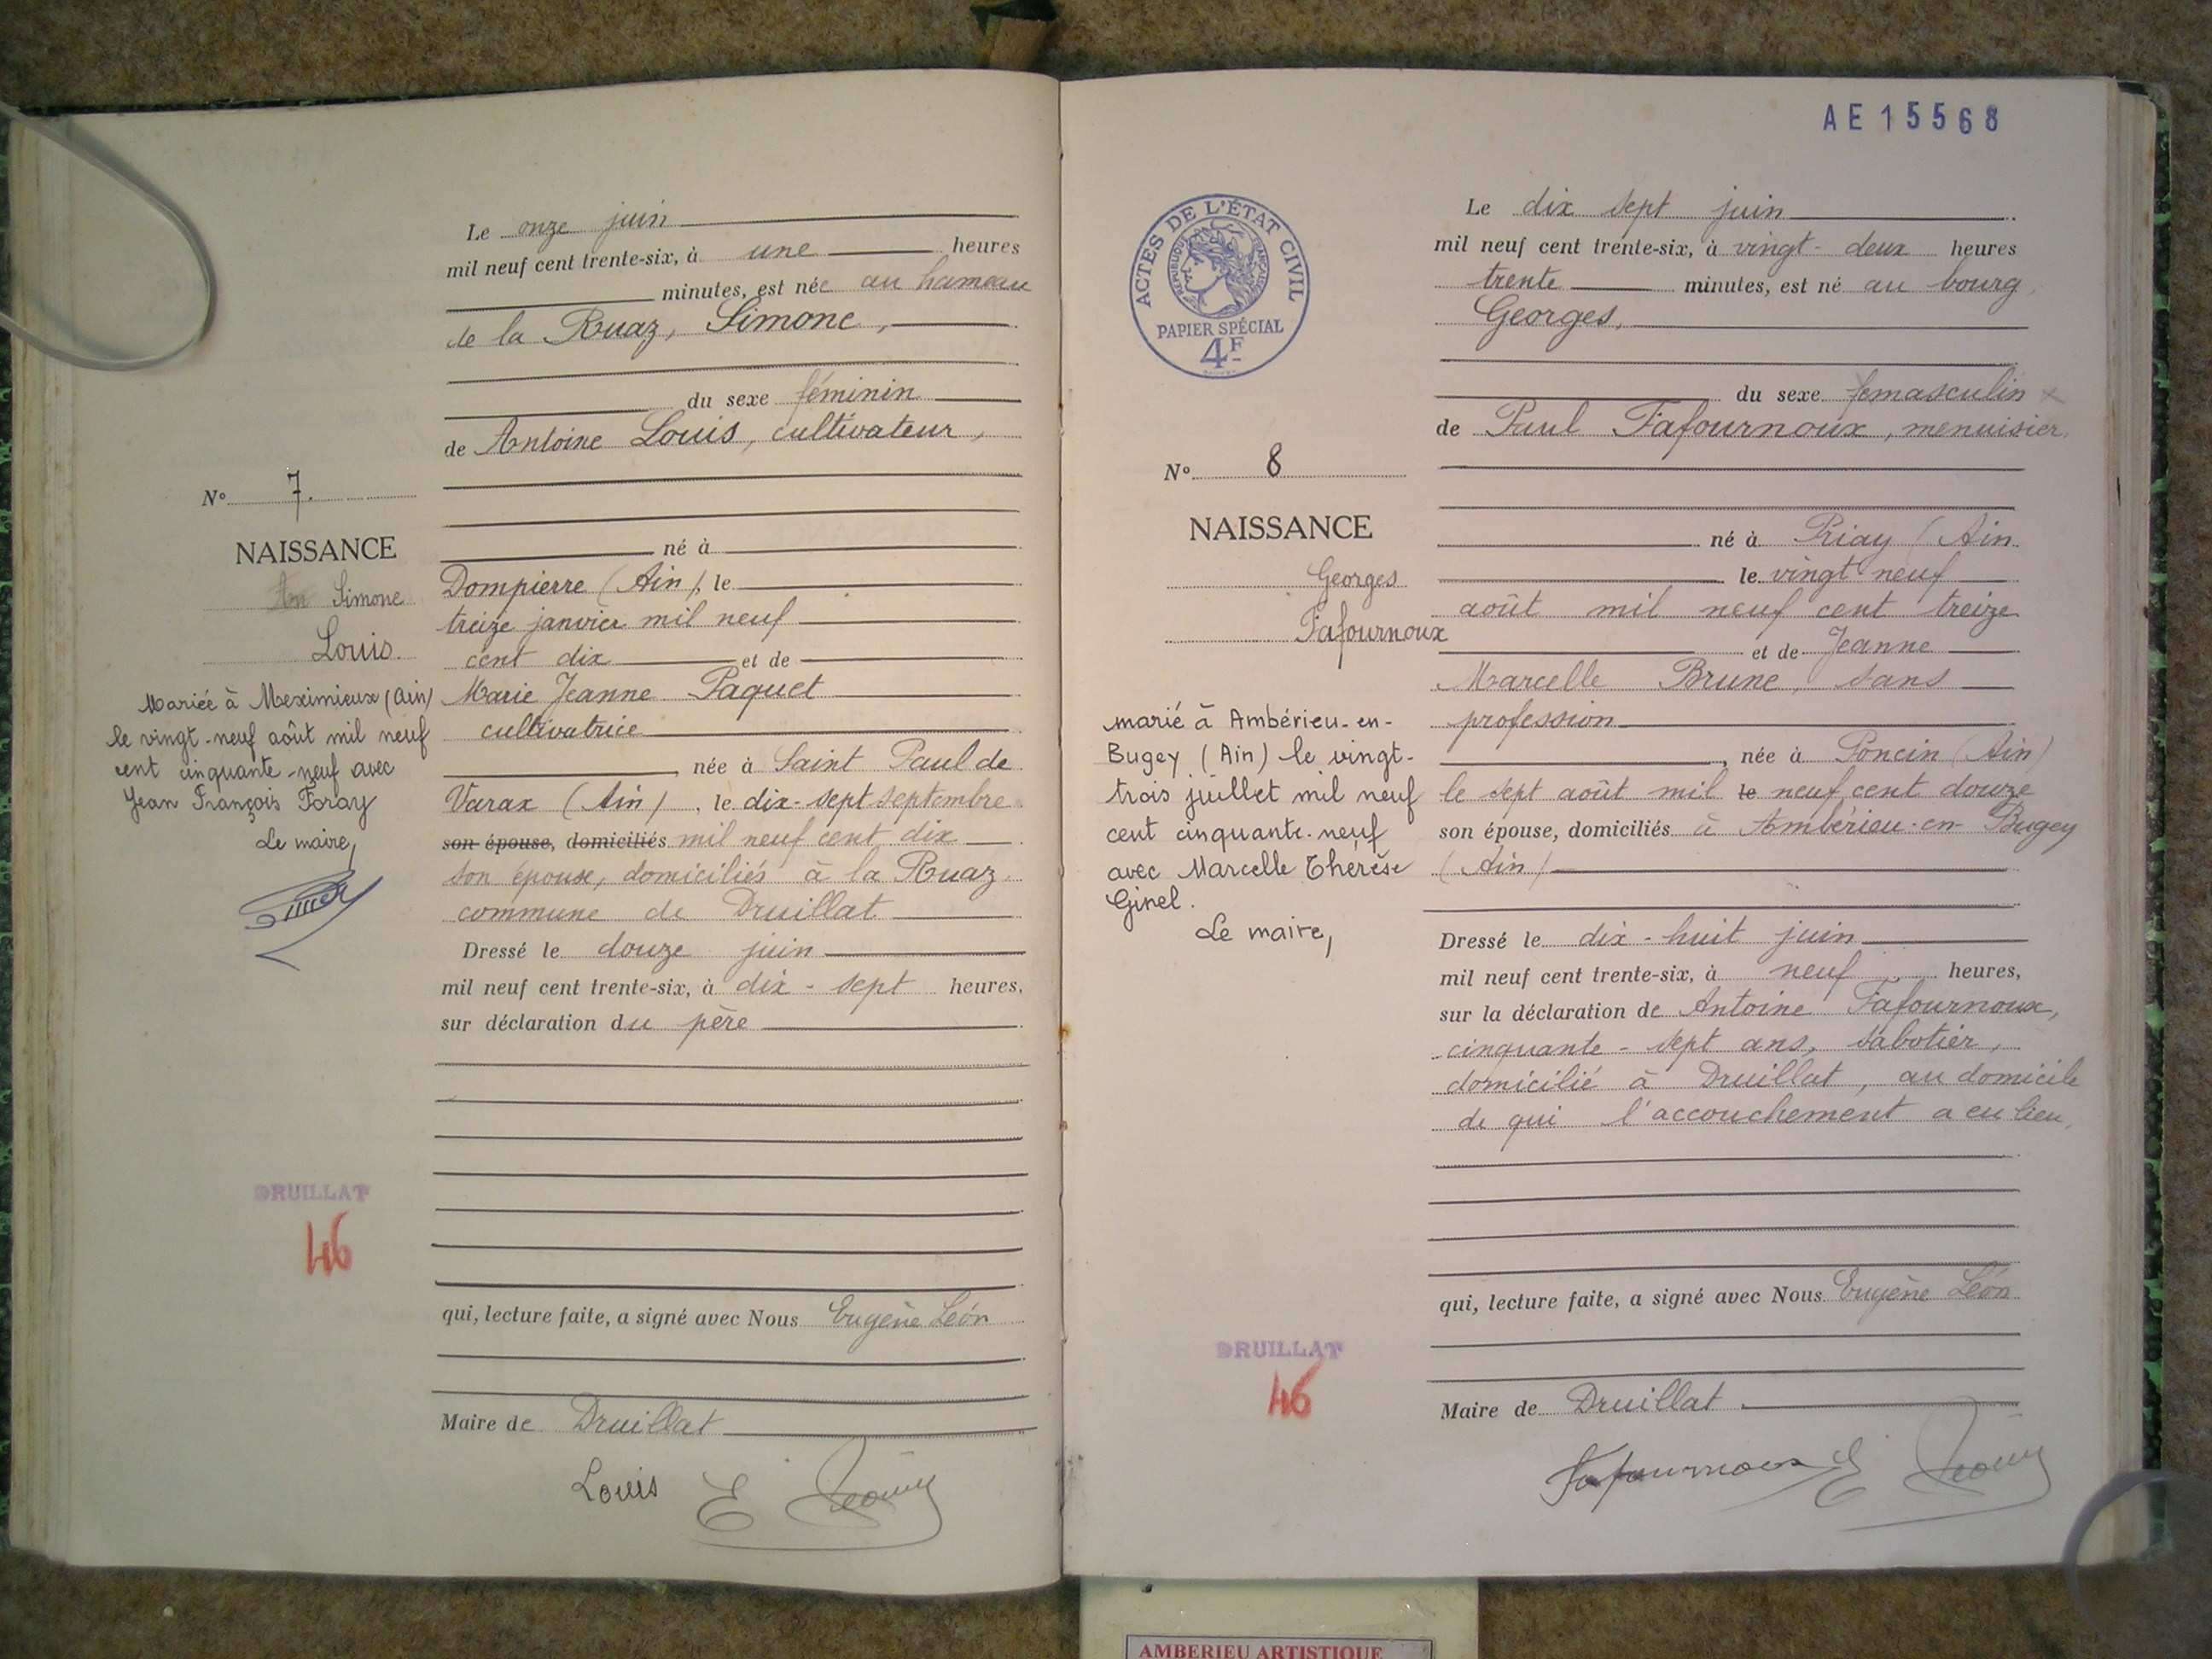 Le onze juin
mil neuf cent trente-six, à une heures
minutes, est née au hameau
de la Ruaz, Simone,
du sexe féminin
de Antoine Louis, cultivateur,
N° 7.
NAISSANCE
Simone
Louis.
né à
Dompierre (Ain), le
treize janvier mil neuf
cent dix et de
Marie Jeanne Paquet
cultivatrice
née à Saint Paul de
Varax (Ain), le dix-sept septembre
son épouse, domiciliés mil neuf cent dix
son épouse, domiciliés à la Ruaz.
commune de Druillat
Dressé le douze juin
mil neuf cent trente-six, à dix-sept heures,
sur déclaration du père
Mariée à Meximieux (Ain)
le vingt-neuf août mil neuf
cent cinquante-neuf avec
Jean François Foray
Le maire,
DRUILLAT
46
qui, lecture faite, a signé avec Nous Eugène Léón
Maire de Druillat
Louis E
AE15568
ACTES DE L'ÉTAT CIVIL
RÉPUBLIQUE FRANÇAISE
PAPIER SPÉCIAL
4F
Le dix sept juin
mil neuf cent trente-six, à vingt-deux heures
trente minutes, est né au bourg,
Georges,
du sexe femasculin x
de Paul Fafournoux, menuisier,
N° 8
NAISSANCE
Georges
Fafournoux
né à Priay (Ain
le vingt neuf
août mil neuf cent treize
et de Jeanne
Marcelle Brune, sans
profession
, née à Poncin (Ain)
le sept août mil le neuf cent douze
son épouse, domiciliés à Ambérieu-en-Bugey
(Ain)
Dressé le dix-huit juin
mil neuf cent trente-six, à neuf heures,
sur la déclaration de Antoine Fafournoux,
cinquante-sept ans, sabotier,
domicilié à Druillat, au domicile
de qui l'accouchement a eu lieu,
marié à Ambérieu-en-
Bugey (Ain) le vingt-
trois juillet mil neuf
cent cinquante-neuf
avec Marcelle Thérèse
Ginel.
Le maire,
DRUILLAT
46
qui, lecture faite, a signé avec Nous Eugène Léón
Maire de Druillat
Fafournoux E
AMBERIEU ARTISTIQUE